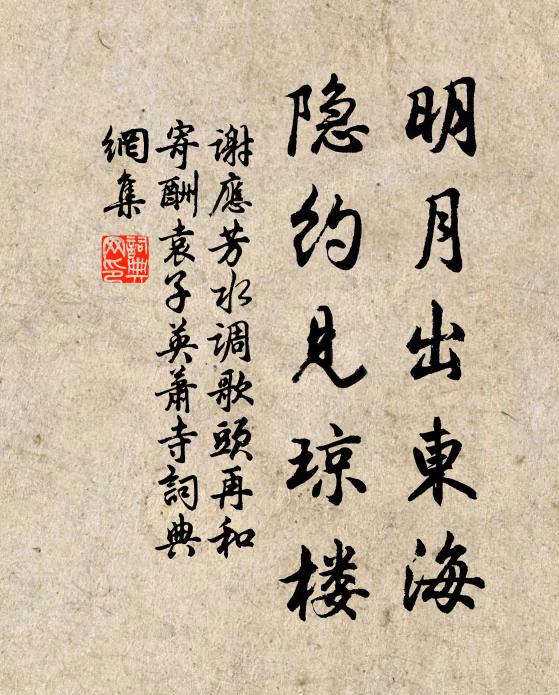 明月出東海
隐约见琼楼
谢應芳水调歌頭再和
寄酬袁子英萧寺詞典
網集
詞典网印